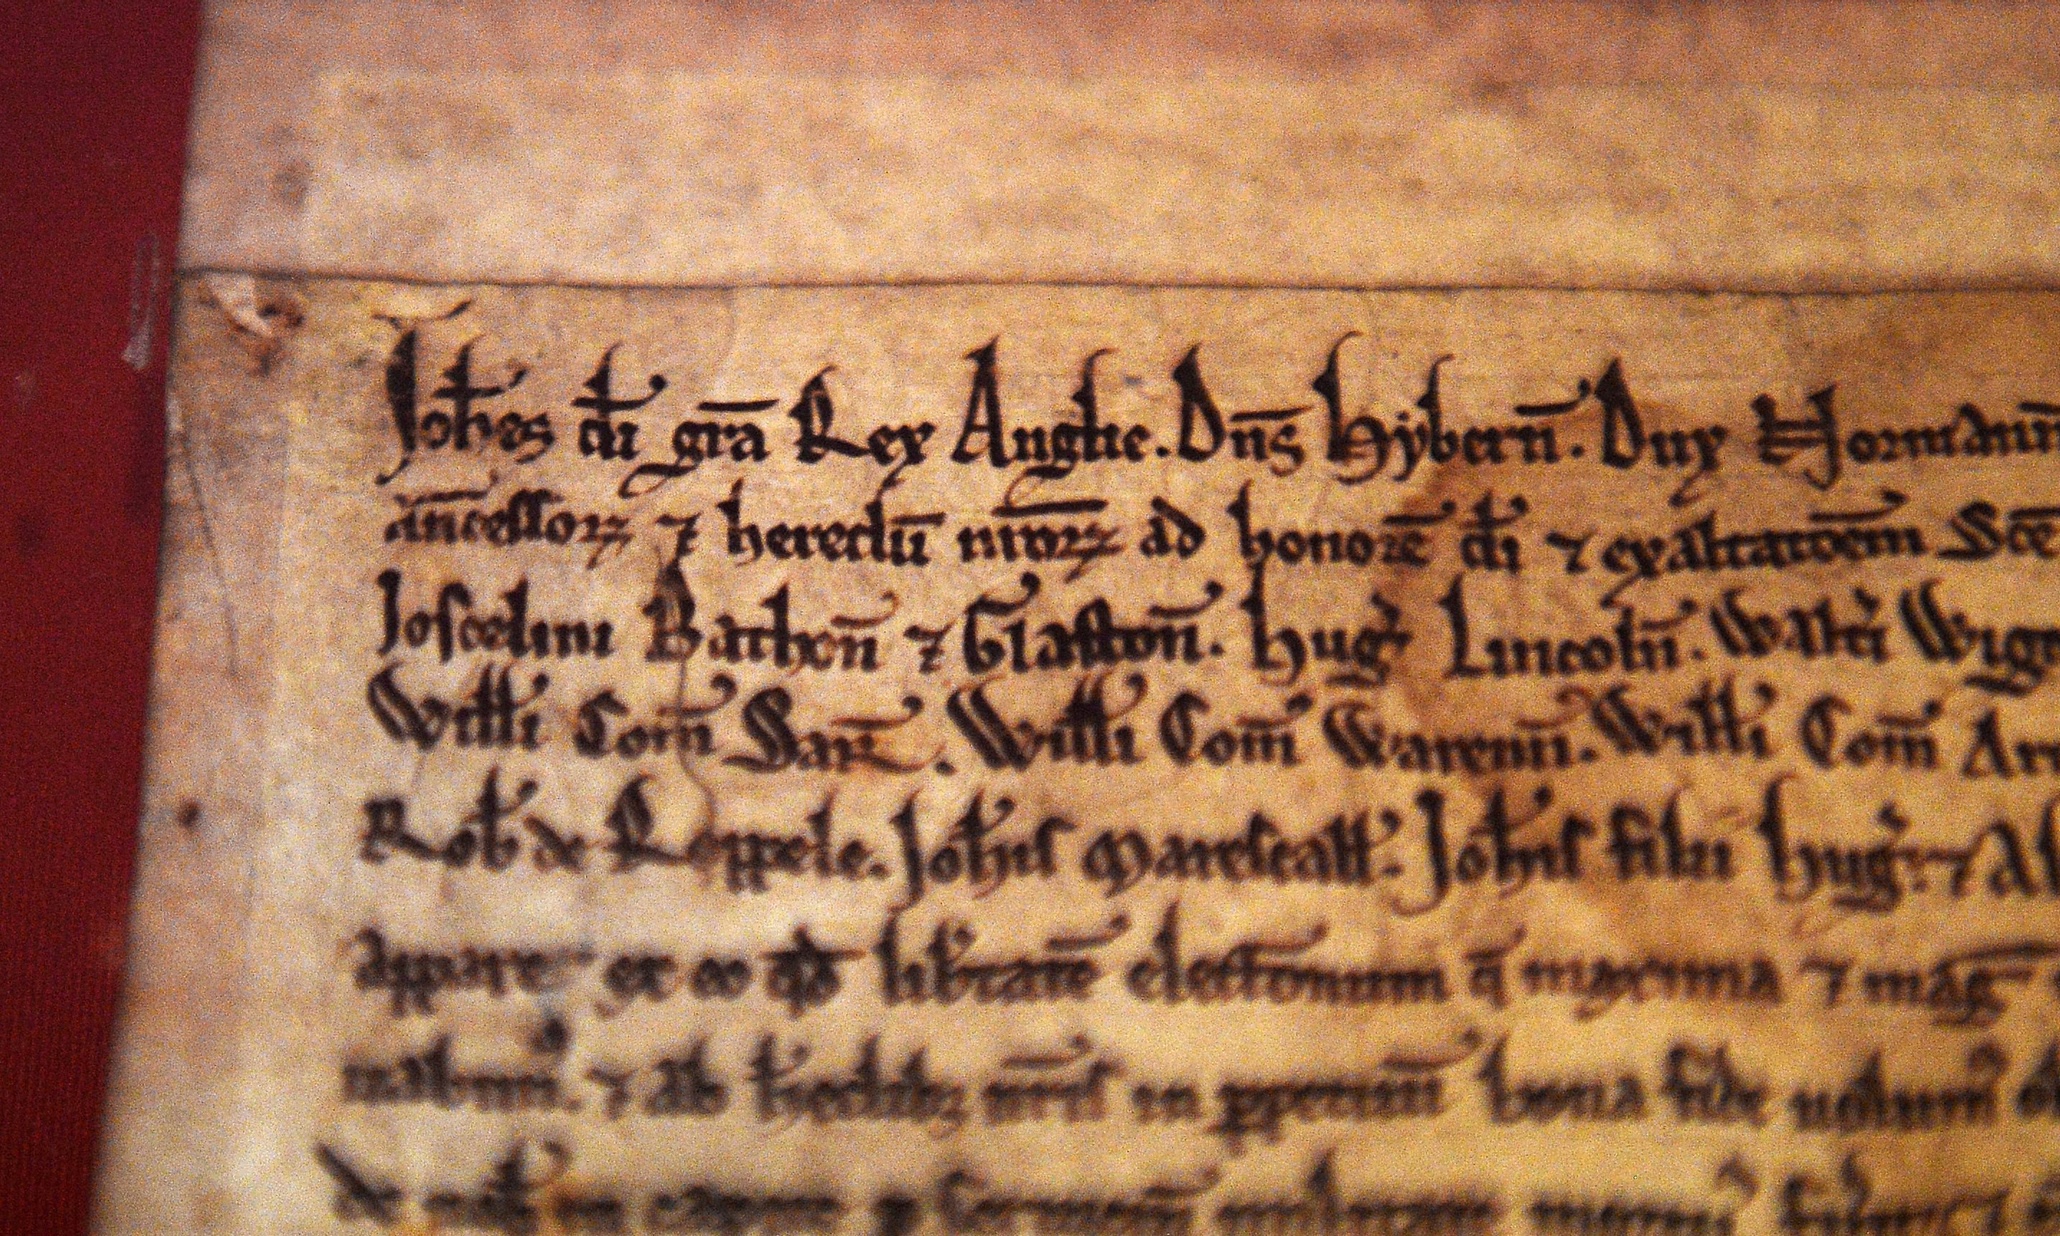 Joh̄es d̄i gr̄a Rex Anglie. Dn̄s Hyb̄ern̄. Dux Normann̄
an̄cessorꝝ ⁊ heredū nr̄orꝝ ad honorē d̄i ⁊ exaltatōem Sc̄e
Joscelini Bathon̄ ⁊ Glaston̄. Huḡ Lincoln̄. Walt̄i Wigorn̄
Will̄i Com̄ Sar̄. Will̄i Com̄ Warenn̄. Will̄i Com̄ Ar
Rob̄ de Roppele. Joh̄is Marescall̄. Joh̄is filii Huḡ. ⁊ Al
appare ex eo qd̄ lib̄tatē elect̄onum q̄ maxima ⁊ maḡ
nabim̄. ⁊ ab h̄edibꝫ nr̄is in ꝑpetuū bona fide volum̄ ob
de